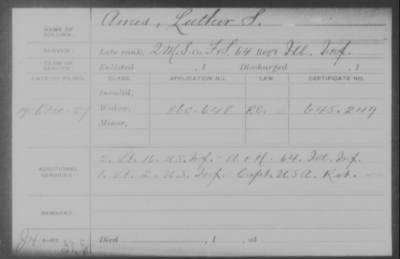 NAME OF SOLDIER: Ames, Luther S.
SERVICE: Late rank, Q.M.S. Co. F&S, 64 Reg't Ill. Inf.
TERM OF SERVICE: Enlisted , 1 Discharged , 1
DATE OF FILING. CLASS. APPLICATION NO. LAW. CERTIFICATE NO.
Invalid,
Widow, 860.648 645.249
Minor,
2. Lt. 16. U.S. Inf. 64. Ill. Inf.
ADDITIONAL SERVICES: 1. Lt. 2. U.S. Inf. Capt. U.S.A. Ret.
REMARKS:
Died , 1 , at